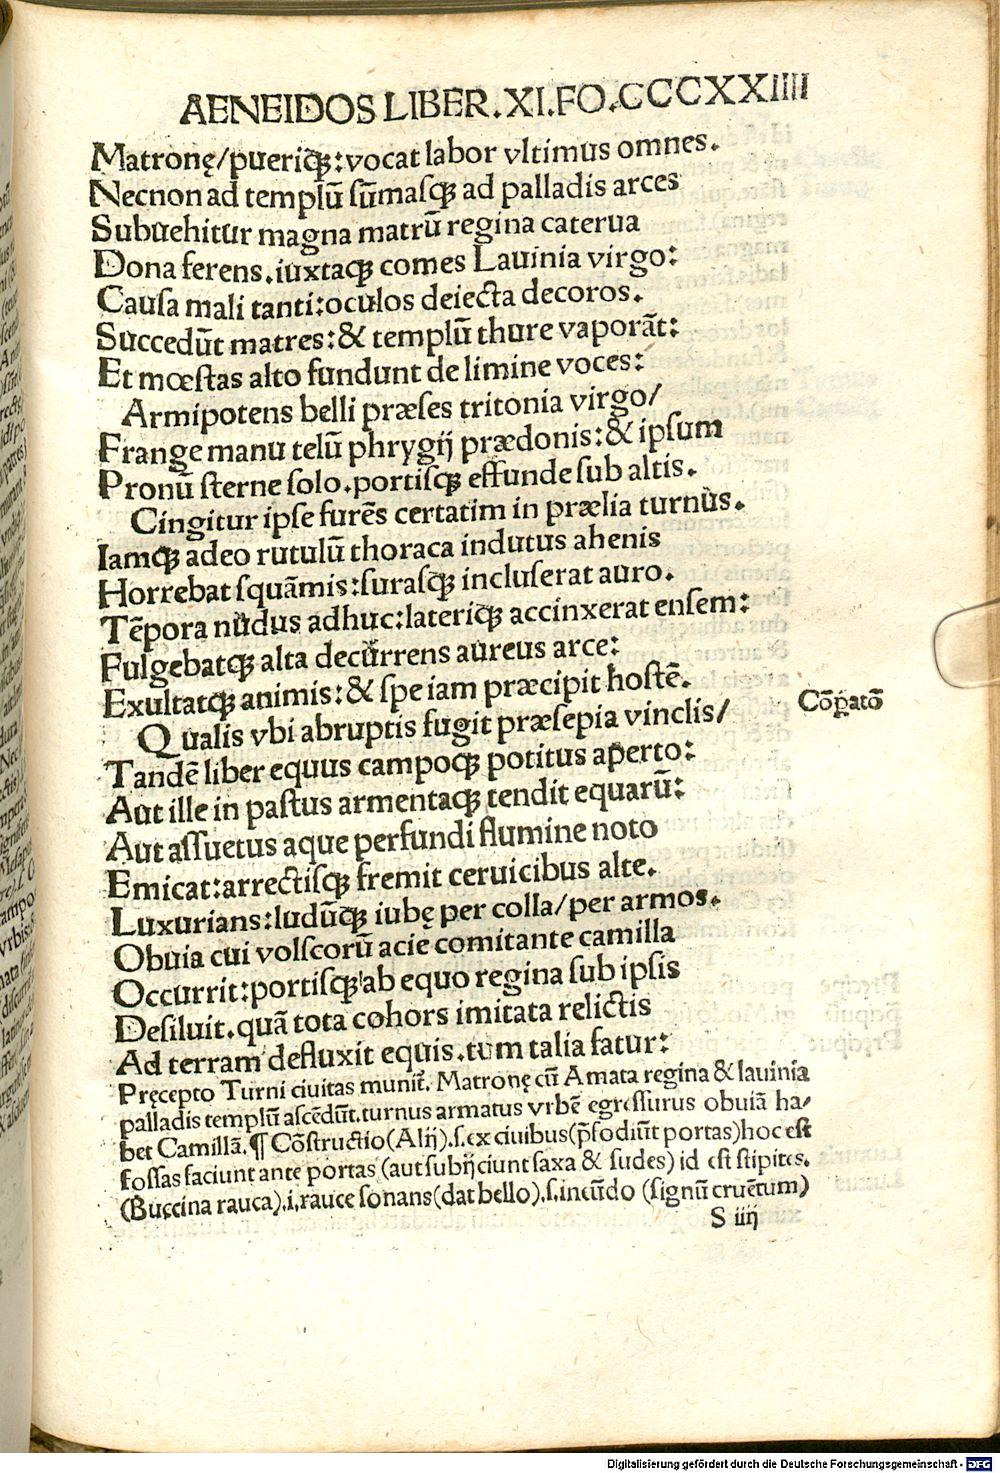 AENEIDOS LIBER.XI.FO.CCCXXIIII
Matronę/pueriqꝫ:vocat labor vltimus omnes.
Necnon ad templū sūmasqꝫ ad palladis arces
Subuehitur magna matrū regina caterua
Dona ferens.iuxtaqꝫ comes Lauinia virgo:
Causa mali tanti:oculos deiecta decoros.
Succedūt matres:& templū thure vaporāt:
Et mœstas alto fundunt de limine voces:
Armipotens belli præses tritonia virgo/
Frange manu telū phrygij prædonis:& ipsum
Pronū sterne solo.portisqꝫ effunde sub altis.
Cingitur ipse furēs certatim in prælia turnus.
Iamqꝫ adeo rutulū thoraca indutus ahenis
Horrebat squāmis:surasqꝫ incluserat auro.
Tēpora nudus adhuc:lateriqꝫ accinxerat ensem:
Fulgebatqꝫ alta decurrens aureus arce:
Exultatqꝫ animis:& spe iam præcipit hostē.
Cōꝑatō
Qualis vbi abruptis fugit præsepia vinclis/
Tandē liber equus campoqꝫ potitus aperto:
Aut ille in pastus armentaqꝫ tendit equarū:
Aut assuetus aque perfundi flumine noto
Emicat:arrectisqꝫ fremit ceruicibus alte.
Luxurians:ludūtqꝫ iubę per colla/per armos.
Obuia cui volscorū acie comitante camilla
Occurrit:portisqꝫ ab equo regina sub ipsis
Desiluit.quā tota cohors imitata relictis
Ad terram defluxit equis.tum talia fatur:
Pręcepto Turni ciuitas munit̄. Matronę cū Amata regina & lauinia
palladis templū ascēdūt.turnus armatus vrbē egressurus obuiā ha/
bet Camillā.¶ Cōstructio(Alij).s.ex ciuibus(p̄fodiūt portas)hoc est
fossas faciunt ante portas (aut subijciunt saxa & sudes) id est stipites.
(Buccina rauca).i.rauce sonans(dat bello).s.ineūdo (signū cruētum)
S iiij
Digitalisierung gefördert durch die Deutsche Forschungsgemeinschaft - DFG